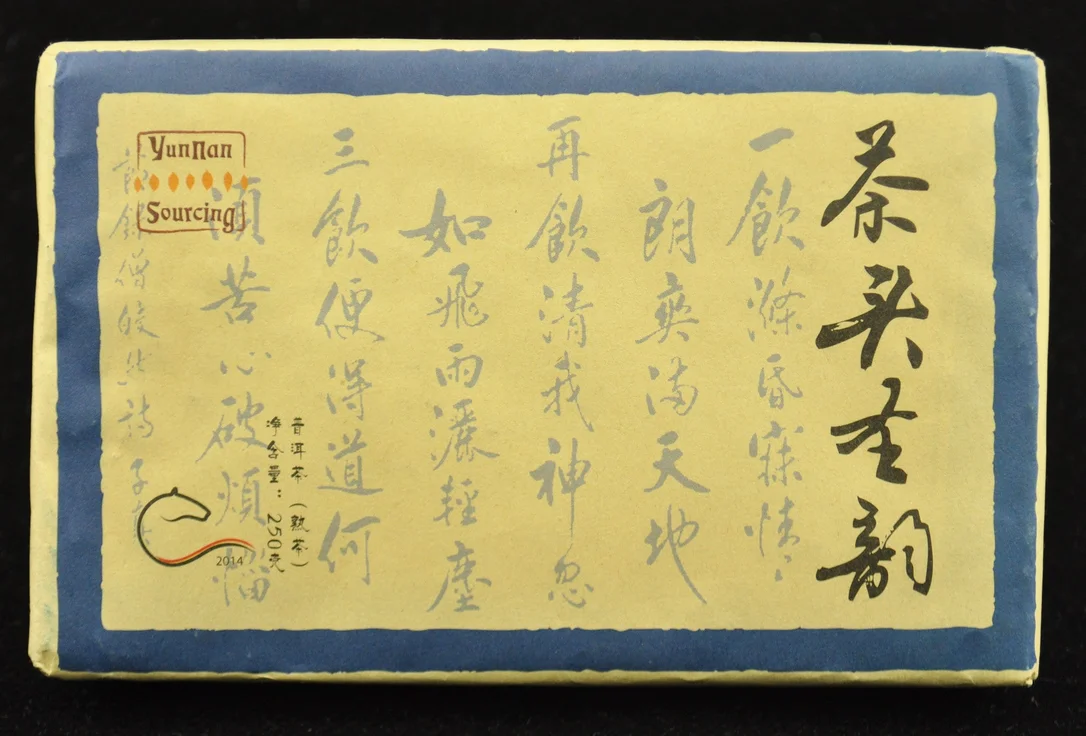 茶头圣韵
一飲滌昏寐情
朗爽满天地
再飲清我神忽
如飛雨灑輕塵
三飲便得道何
須苦心破煩惱
節錄僧皎然詩 子
Yunnan
Sourcing
普洱茶（熟茶）
净含量：250克
2014